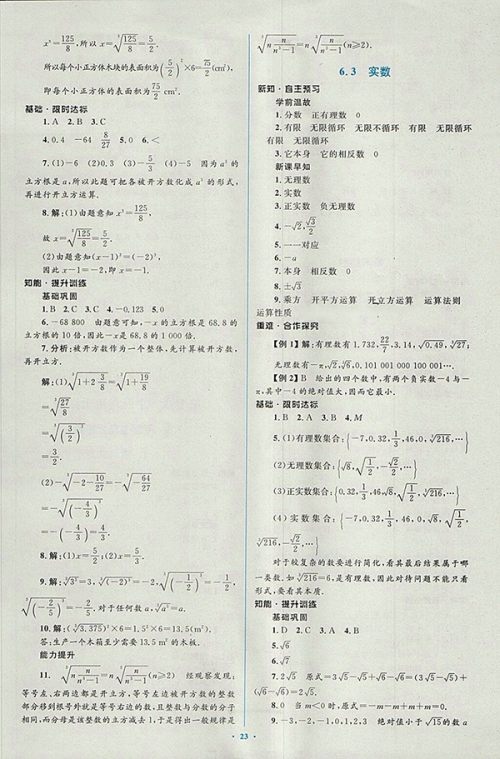 x³=125/8,所以 x=∛(125/8)=5/2.
所以每个小正方体木块的表面积为(5/2)²×6=75/2(cm²),
即每个小正方体的表面积为75/2 cm².
基础·限时达标
1. A 2. B 3. C
4. 0.4 -64 8/27 5. 0 6. <
7. (1)-8 (2)3 (3)-5/3 (4)-5 因为 a³的
立方根是 a,所以此题可把各被开方数化成 a³的形式,
再进行开立方运算.
8. 解:(1)由题意知 x³=125/8,
故 x=∛(125/8)=5/2.
(2)由题意知(x-1)³=(-2)³,
因此 x-1=-2,即 x=-1.
知能·提升训练
基础巩固
1. B 2. C 3. C 4. -0.123 5. 0
6. -68 800 由题意,可知-x 的立方根是 68.8 的
立方根的 10 倍,因此-x 是 68.8 的 1 000 倍.
7. 分析:被开方数作为一个整体,先计算被开方数,
再开立方.
解:(1)∛(1+2 3/8)=∛(1+19/8)
=∛(27/8)
=∛((3/2)³)
=3/2.
(2)-∛(-2-10/27)=-∛(-64/27)
=-∛((-4/3)³)
=-(-4/3)=4/3.
8. 解:(1)x=5/2;(2)x=5/2.
9. 解:∛(3³)=3,∛((-2)³)=-2,∛((1/2)³)=1/2,
∛((-2/5)³)=-2/5. 对于任何数 a,∛(a³)=a.
10. 解:(∛3.375)²×6=1.5²×6=13.5(m²).
答:生产一个木箱至少需要 13.5 m²的木板.
能力提升
11. ∛(n+n/(n³-1))=n∛(n/(n³-1))(n≥2) 经观察发现:
等号左、右两边都是开立方,等号左边被开方数的整数
部分移到根号外就是等号右边的数,且整数与分数的分子
相同,而分母是该整数的立方减去 1,于是得出一般规律是
∛(n+n/(n³-1))=n∛(n/(n³-1))(n≥2).
6.3 实数
新知·自主预习
学前温故
1. 分数 正有理数 0
2. 有限 无限循环 无限不循环 有限 无限循环
有限 无限循环
3. 它本身 它的相反数 0
新课早知
1. 无理数
2. 实数
3. 正实数 负无理数
4. -√2,√3/2
5. 一一对应
6. -a
7. 本身 相反数 0
8. ±√3
9. 乘方 开平方运算 开立方运算 运算法则
运算性质
重难·合作探究
【例 1】解:有理数有 1.732,22/7,3.14,√0.49,∛27;
无理数有-π,√6,0.101 001 000 100 001….
【例 2】B 给出的四个数中,有两个负实数-4 与-
π,其中-4 的绝对值大,因而它最小.
基础·限时达标
1. D 2. B 3. B 4. M
5. (1)有理数集合:{-7,0.32,1/3,46,0,∛216,…}
(2)无理数集合:{√8,√(1/2),-√2/2,…}
(3)正实数集合:{0.32,1/3,46,√8,√(1/2),∛216,…}
(4)实数集合:{-7,0.32,1/3,46,0,√8,√(1/2),
∛216,-√2/2,…}
对于较复杂的数要进行简化,看其最后结果属于哪
一类数.如∛216=6,是有理数,因此对待问题不能只看
形式,要看其本质.
知能·提升训练
基础巩固
1. D 2. C 3. A 4. B
5. √6
6. √7
7. √2 原式=3√5-√5+√6-(3√5-√2)
+(√6-√5)
8. 0 当 m<0 时,原式=-m+m=0.
9. -3,-2,-1,0,1,2,3 绝对值小于√15的数 a
23